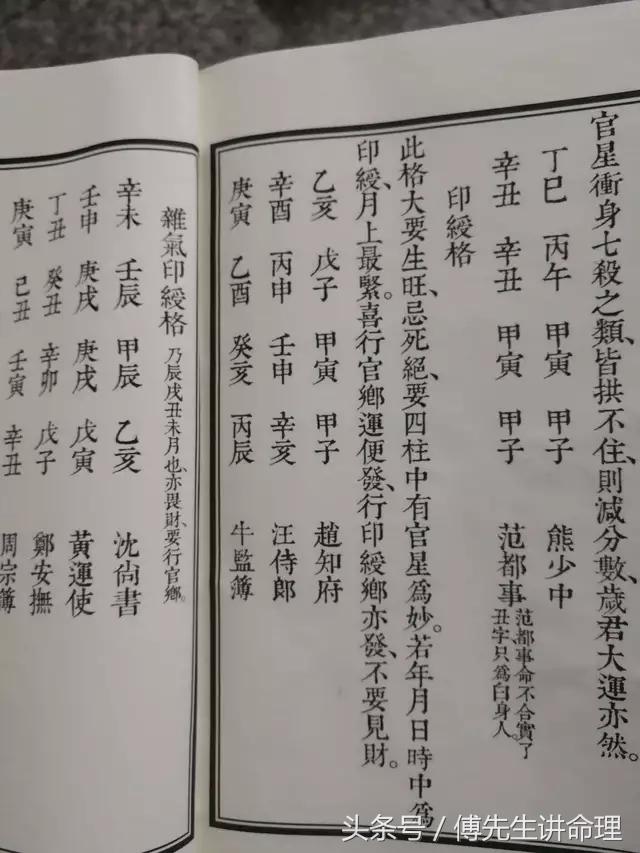 官星衝身七殺之類、皆拱不住、則減分數、歲君大運亦然。
丁巳 丙午 甲寅 甲子 熊少中
辛丑 辛丑 甲寅 甲子 范都事 范都事命不合實了丑字、只為白身人。
印綬格
此格大要生旺、忌死絕、要四柱中有官星為妙。若年月日時中為
印綬、月上最緊。喜行官鄉、運便發、行印綬鄉亦發、不要見財。
乙亥 戊子 甲寅 甲子 趙知府
辛酉 丙申 壬申 辛亥 汪侍郎
庚寅 乙酉 癸亥 丙辰 牛監簿
雜氣印綬格 乃辰戌丑未月也、亦畏財、要行官鄉。
辛未 壬辰 甲辰 乙亥 沈尚書
壬申 庚戌 庚戌 戊寅 黃運使
丁丑 癸丑 辛卯 戊子 鄭安撫
庚寅 己丑 壬寅 辛丑 周宗簿
头条号 / 傅先生讲命理